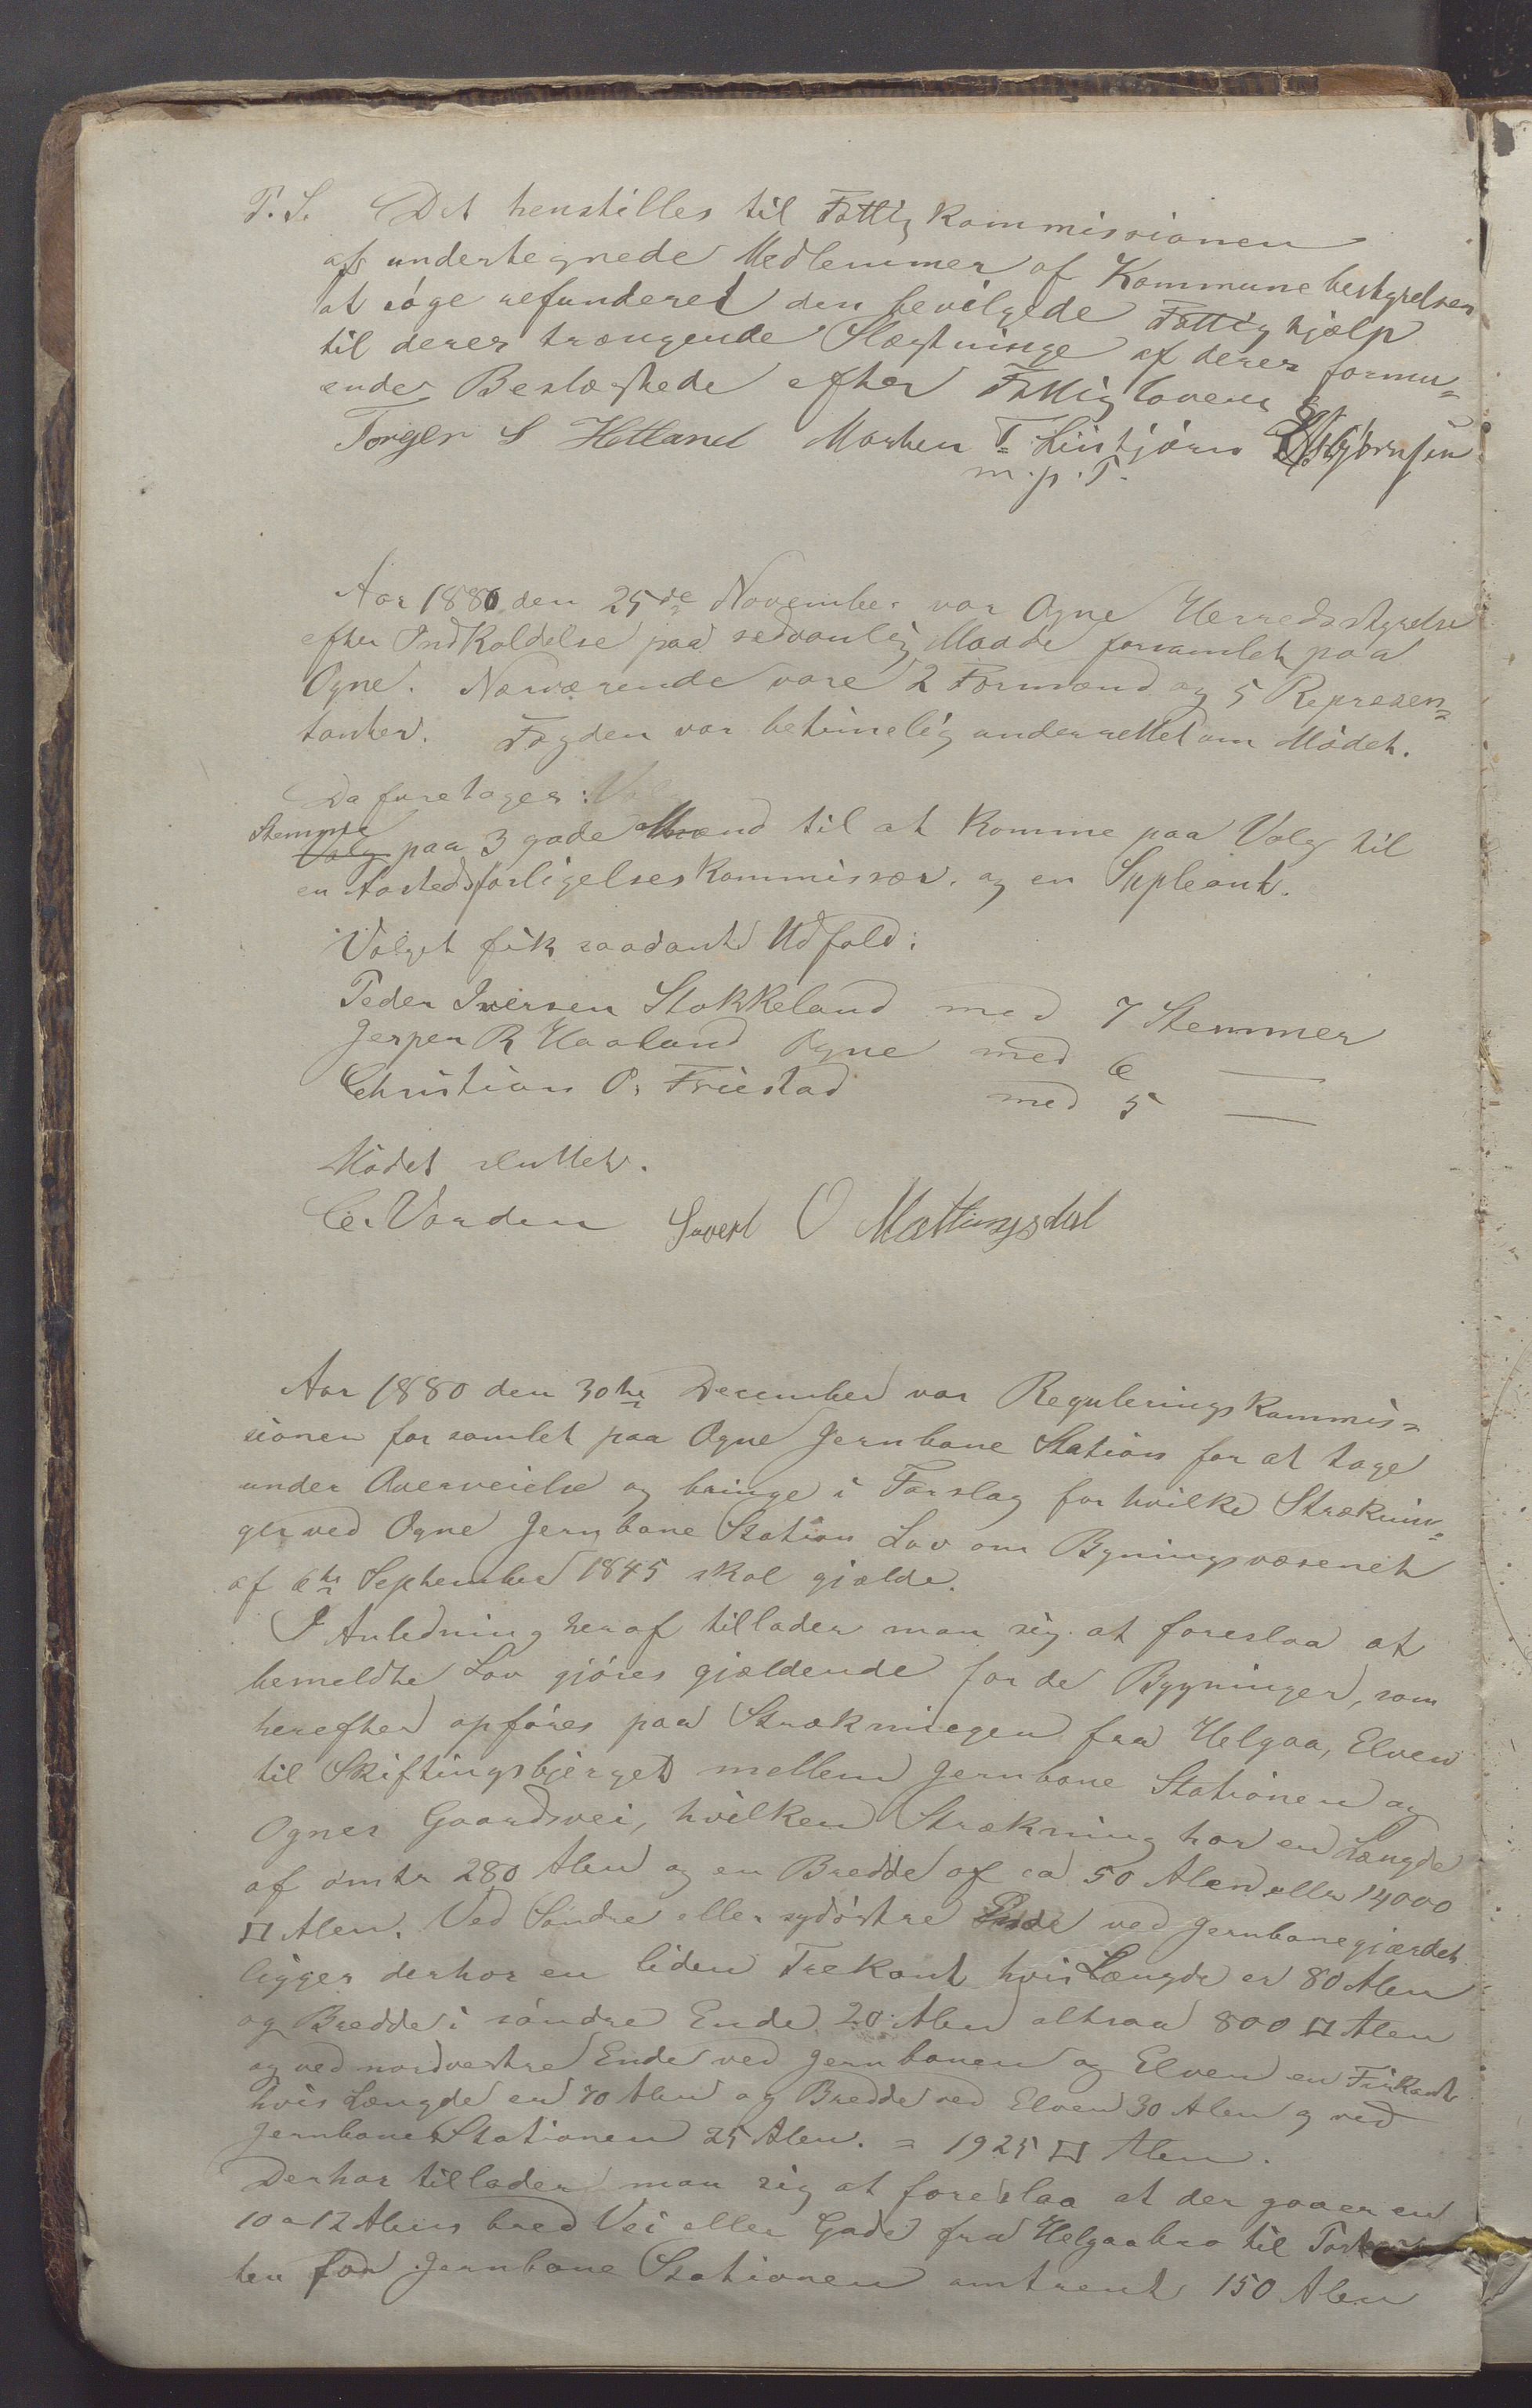 T. S. Det henstilles til Fattigkommissionen
af undertegnede Medlemmer af Kommunebestyrelsen
at søge refunderet den bevilgede Fattighjælp
til deres trængende Slægtninge af deres formu=
ende Beslægtede efter Fattiglovens §
Torger S Hetland Morten T. Liustjørn Asbjørnsen
m. p. T.
Aar 1880 den 25de November var Ogne Herredsstyrelse
efter Indkaldelse paa sedvanlig Maade forsamlet paa
Ogne. Nærværende vare 2 Formænd og 5 Represen=
tanter. Fogden var betimelig underrettet om Mødet.
Da foretoges:
Stemme
Valg paa 3 gode Mænd til at komme paa Valg til
en Aastedsforligelseskommissær. og en Supleant.
Valget fik saadant Udfald:
Peder Iversen Stokkeland med 7 Stemmer
Jesper R Haaland Ogne med 6 —
Christian O. Friestad med 5 —
Mødet sluttet.
C. Varden Sivert O Mattingsdal
Aar 1880 den 30te December var Reguleringskommis=
sionen forsamlet paa Ogne Jernbane Station for at tage
under Overveielse og bringe i Forslag for hvilke Stræknin=
ger ved Ogne Jernbane Station Lov om Bygningsvæsenet
af 6te September 1845 skal gjælde.
I Anledning heraf tillader man sig at foreslaa at
bemeldte Lov gjøres gjældende for de Bygninger, som
herefter opføres paa Strækningen fra Helgaa, Elven
til Skiftingsbjerget mellem Jernbane Stationen og
Ognes Gaardsvei, hvilken Strækning har en Længde
af omtr 280 Alen og en Bredde af ca 50 Alen eller 14000
□ Alen. Ved Søndre eller sydøstre Ende ved Jernbanegjærdet
ligger derhos en liden Trekant hvis Længde er 80 Alen
og Bredde i søndre Ende 20 Alen altsaa 800 □ Alen
og ved nordvestre Ende ved Jernbanen og Elven en Firkant
hvis Længde er 70 Alen og Bredde ved Elven 30 Alen og ved
Jernbane Stationen 25 Alen. = 1925 □ Alen.
Derhos tillader man sig at foreslaa at der gaaer en
10 a 12 Alens bred Vei eller Gade fra Helgaabro til
ten for Jernbane Stationen omtrent 150 Alen